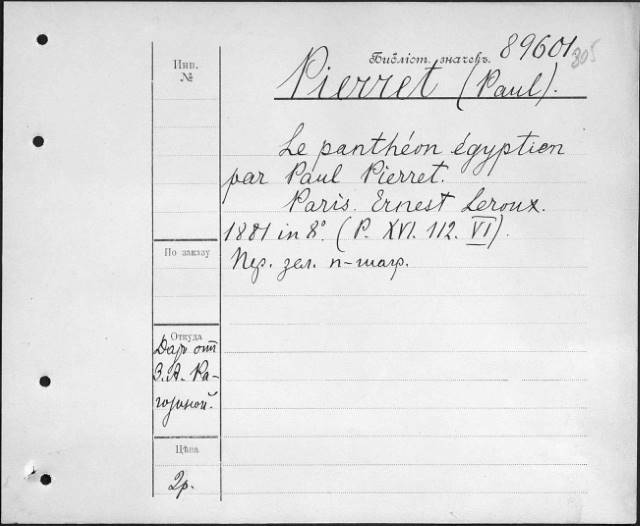 Библіот. значекъ. 89601
305
Инв.
№
Pierret (Paul).
Le panthéon égyptien
par Paul Pierret.
Paris. Ernest Leroux.
1881 in 8° (P. XVI. 112. VI).
По заказу
Пер. зел. п-шагр.
Откуда
Даръ отъ
З. А. Ра-
гозиной.
Цѣна
2р.